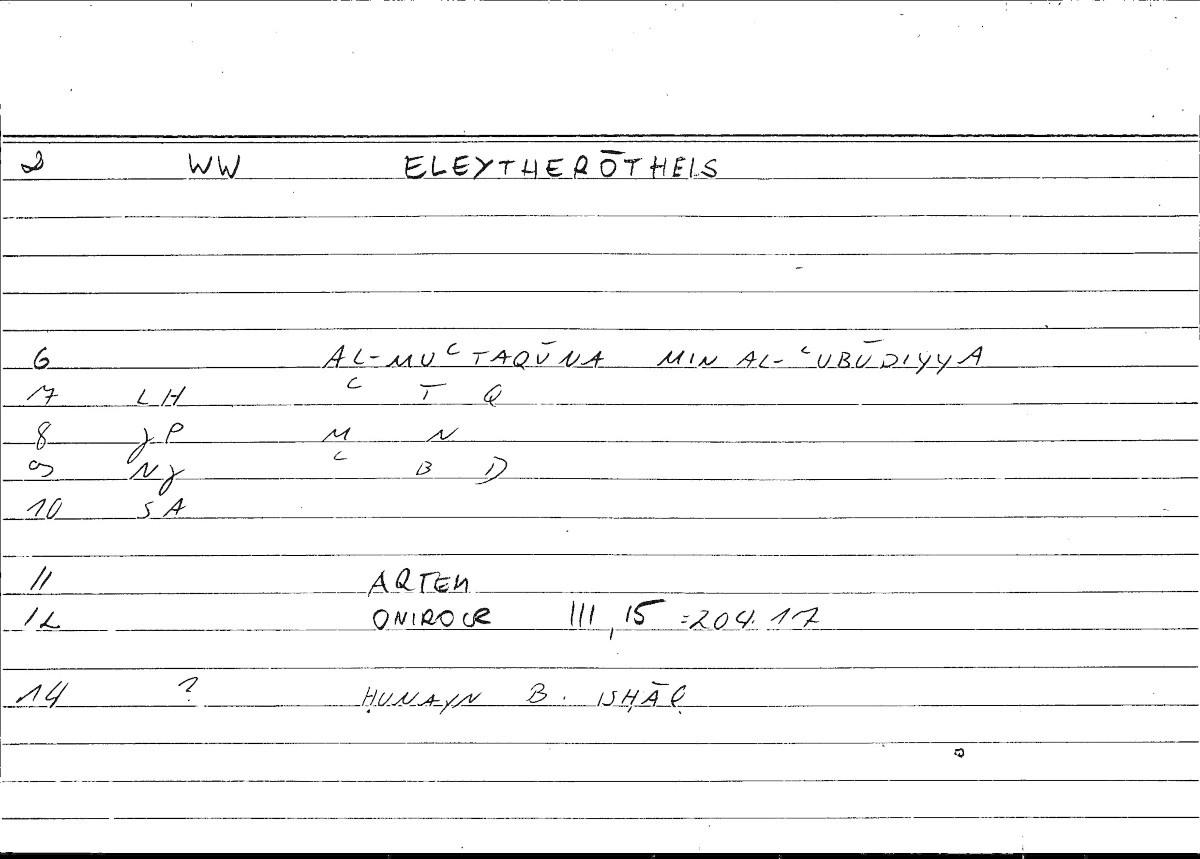 2 WW ELEYTHERŌTHEIS
6 AL-MUʿTAQŪNA MIN AL-ʿUBŪDIYYA
7 LH ʿ T Q
8 JP M N
9 NJ ʿ B D
10 SA
11 ARTEM
12 ONIROCR III, 15 =204.17
14 ? ḤUNAYN B. ISḤĀQ